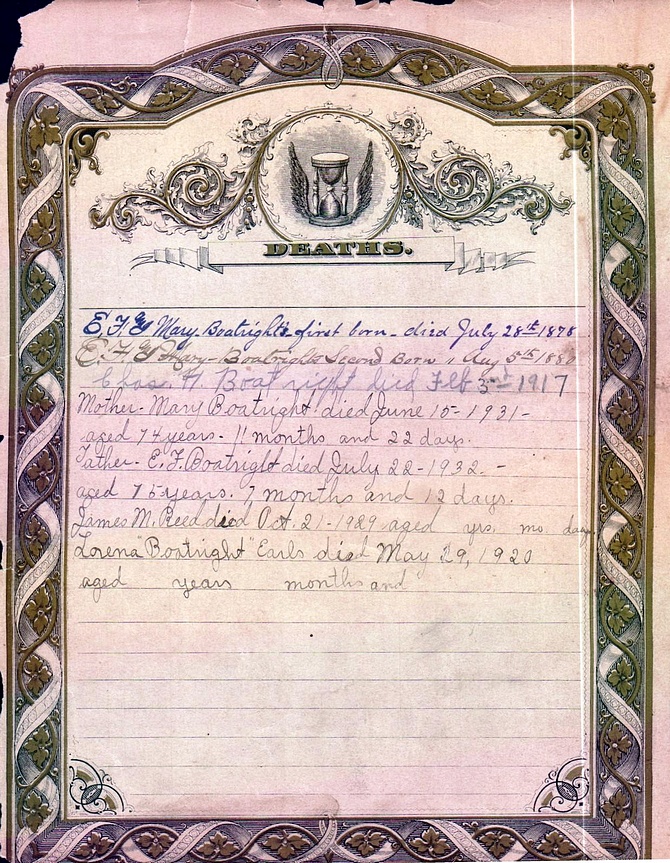 DEATHS.
E. F. & Mary Boatright's first born - died July 28th 1878
E. F. & Mary Boatrights Second Born " Aug 5th 1880
Chas. H. Boatright died Feb 3rd 1917
Mother - Mary Boatright died June 15 - 1931 -
aged 74 years - 11 months and 22 days.
Father - E. F. Boatright died July 22 - 1932. -
aged 75 years. 7 months and 12 days.
James M. Reed died Oct. 21 - 1929 aged yrs. mo. days
Lorena "Boatright" Earls died May 29, 1920
aged years months and